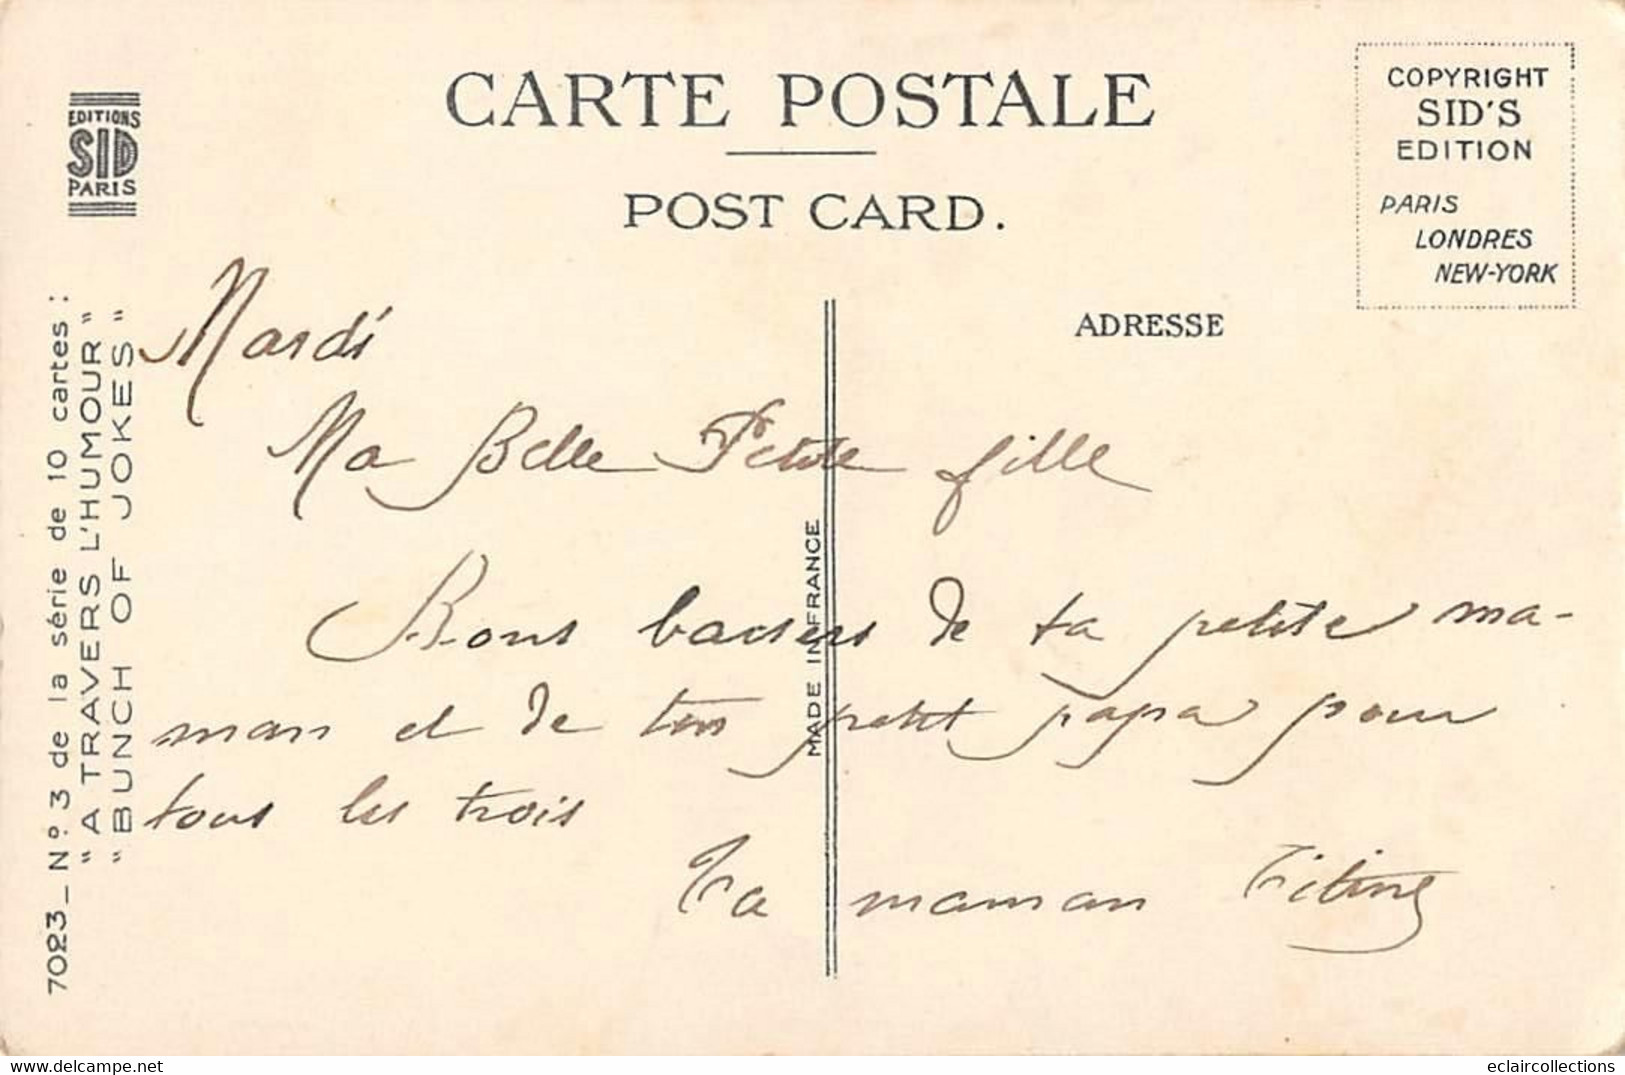 CARTE POSTALE
POST CARD.
EDITIONS
SID
PARIS
COPYRIGHT
SID'S
EDITION
PARIS
LONDRES
NEW-YORK
ADRESSE
7023_N° 3 de la série de 10 cartes:
"A TRAVERS L'HUMOUR"
"BUNCH OF JOKES"
MADE IN FRANCE
Mardi
Ma Belle Petite fille
Bons baisers de ta petite ma-
man et de ton petit papa pour
tous les trois
Ta maman Titine
www.delcampe.net
eclaircollections